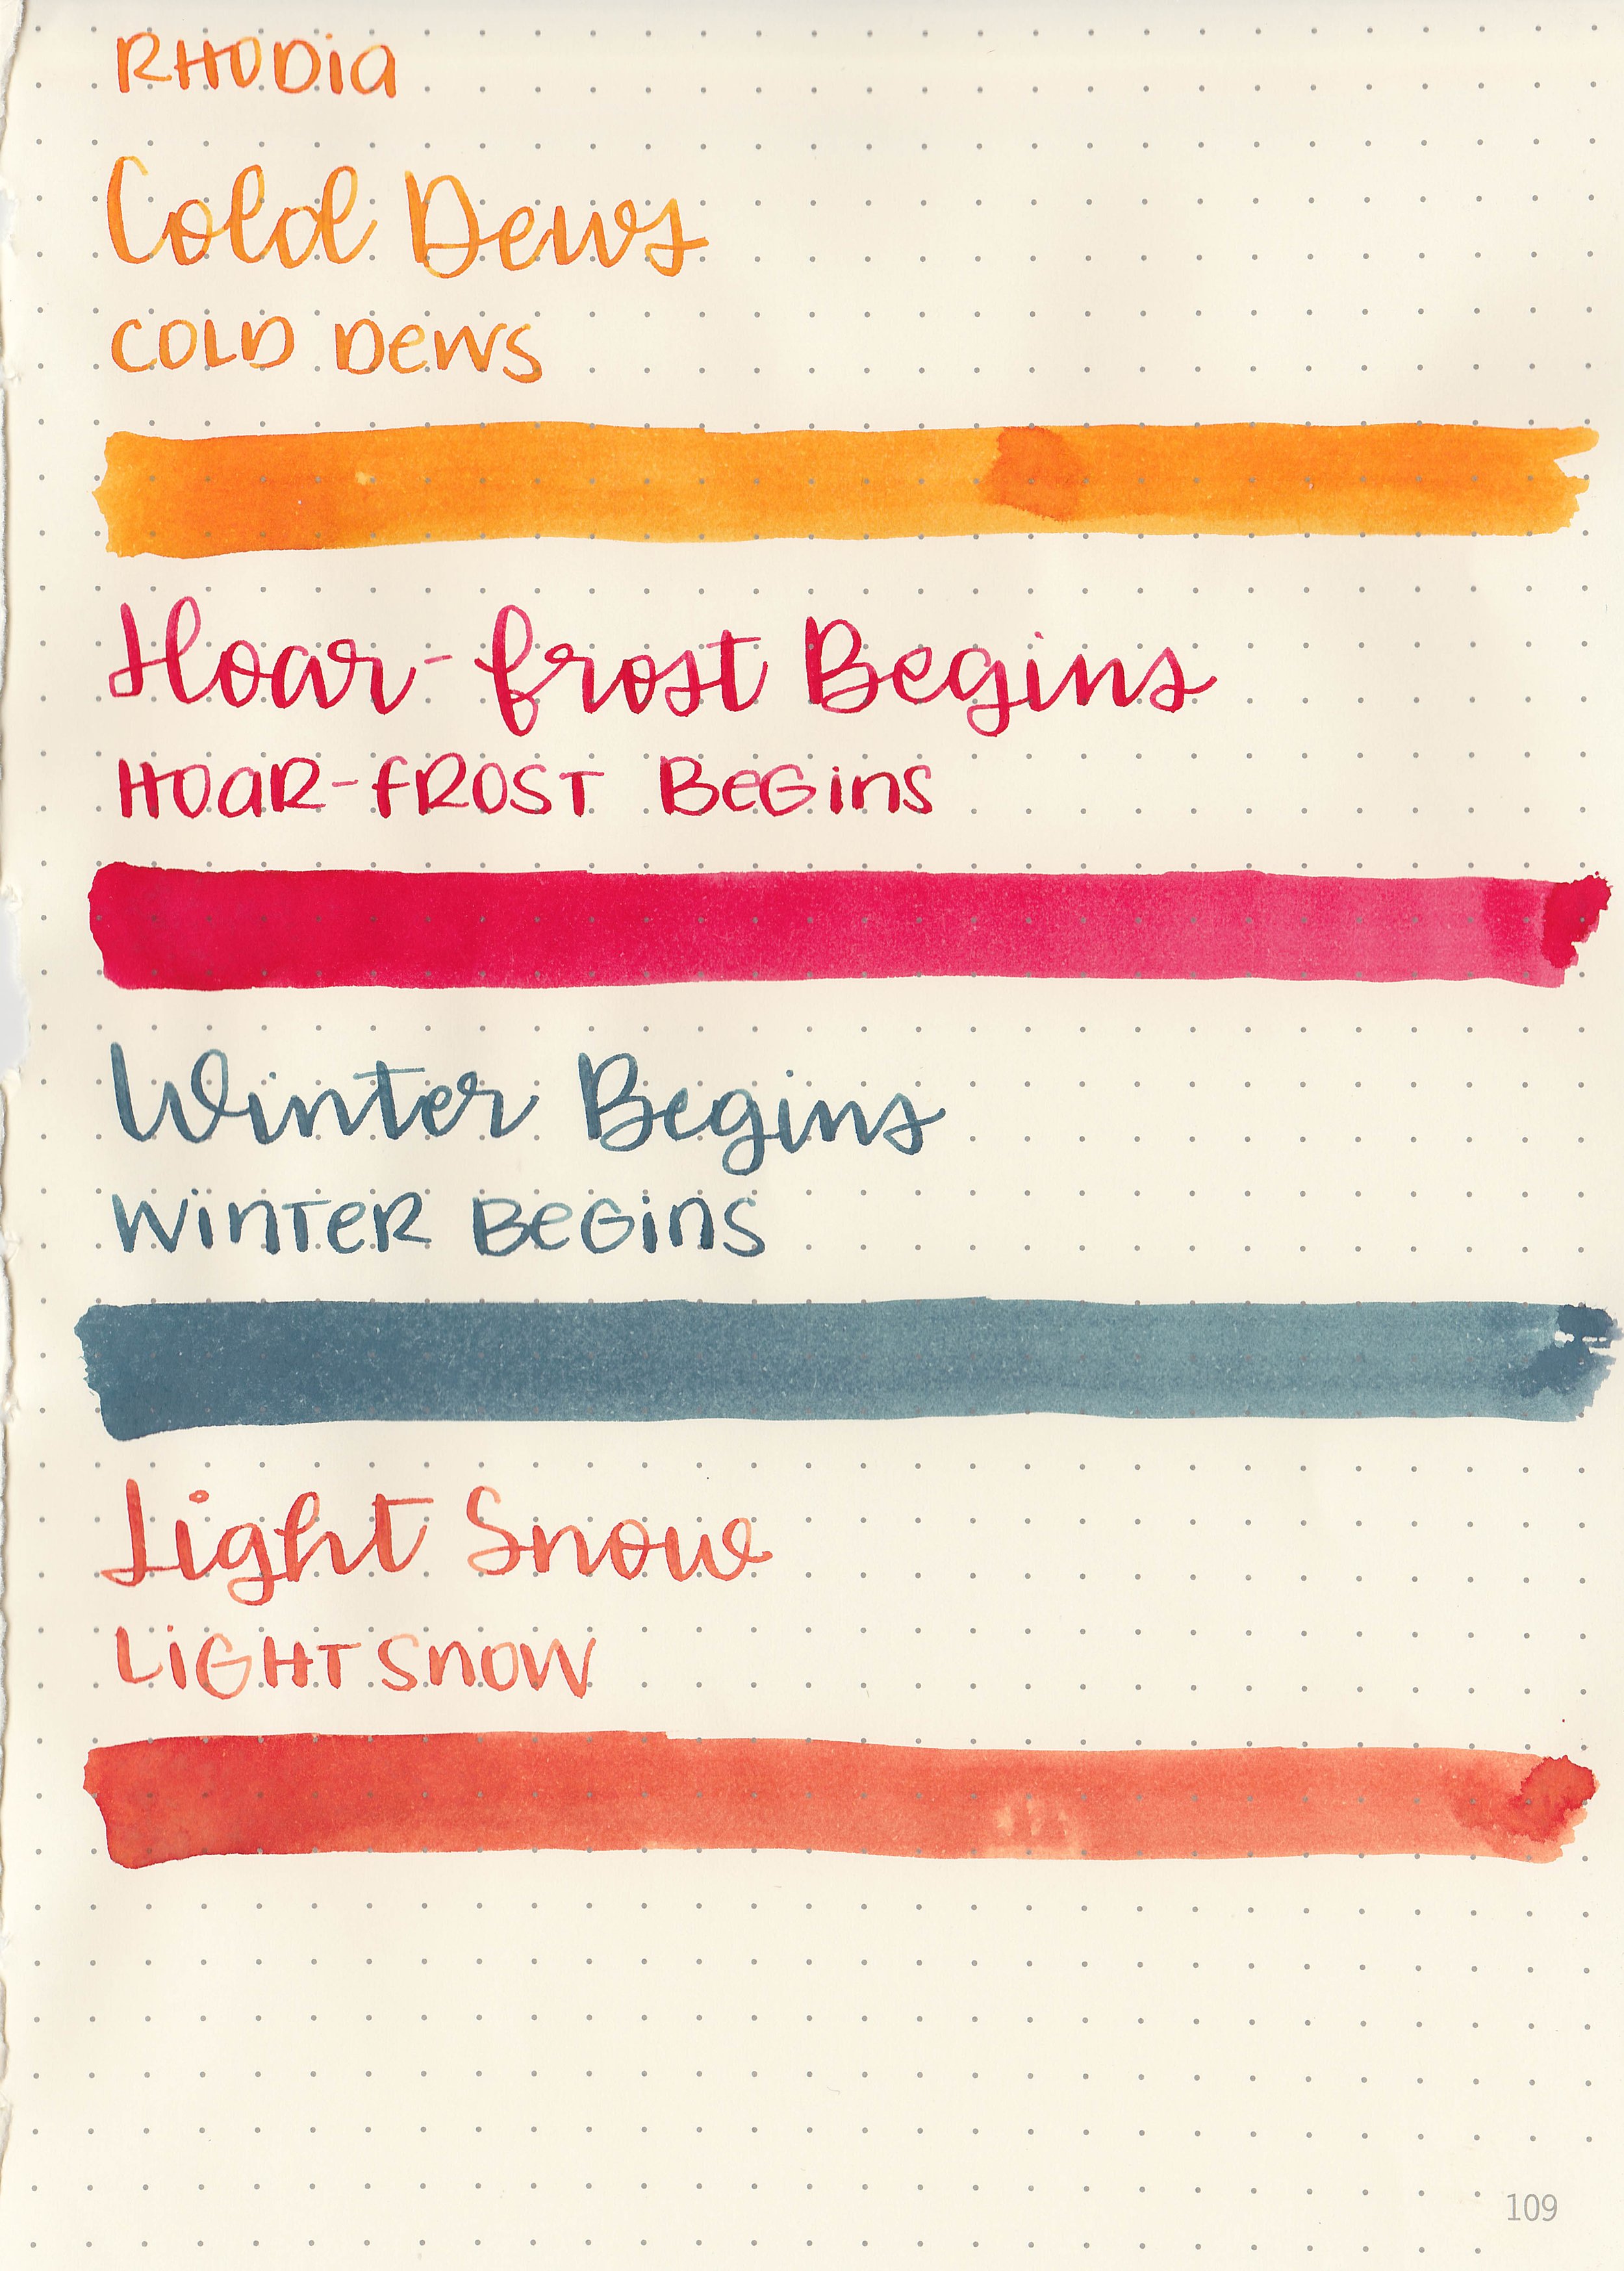 RHODia
Cold Dews
COLD DeWS
Hoar-frost Begins
HOaR-fROST BeGinS
Winter Begins
WinTeR BeGinS
Light Snow
LiGHT SnOW
109